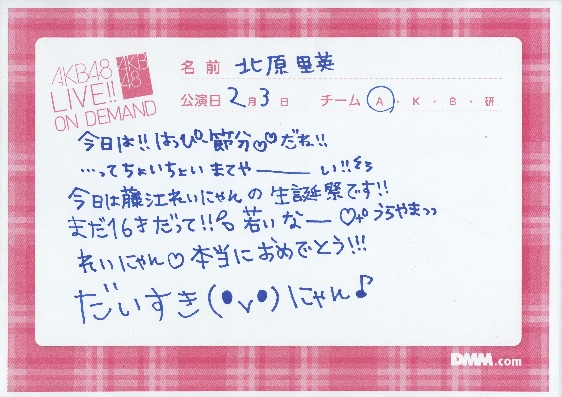 AKB48
LIVE!!
ON DEMAND
AKB
48
名前 北原里英
公演日 2月3日 チーム A・K・B・研
今日は!!はっぴー節分♡♡だね!!
…ってちょいちょいまてやーーーい!!
今日は藤江れいにゃんの生誕祭です!!
まだ16さだって!!若いなー♡うらやまっっ
れいにゃん♡本当におめでとう!!!
だいすき(•v•)にゃん♪
DMM.com